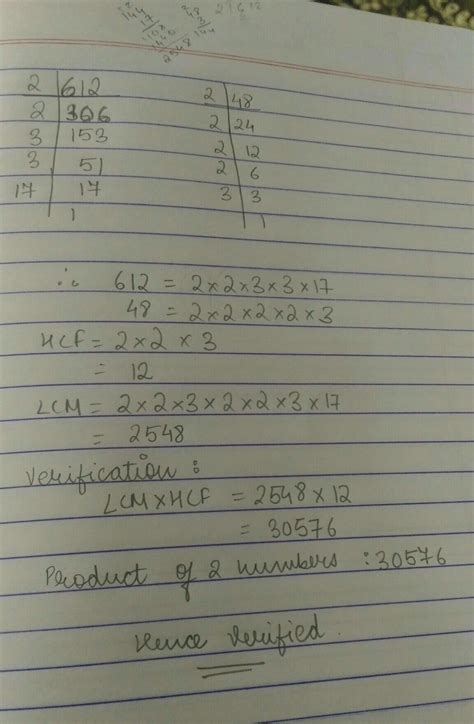 144
17
1108
1440
2548
48
2 | 612
2 | 306
3 | 153
3 | 51
17 | 17
1
2 | 48
2 | 24
2 | 12
2 | 6
3 | 3
1
∴ 612 = 2×2×3×3×17
48 = 2×2×2×2×3
HCF = 2×2 × 3
= 12
LCM = 2×2×3×2×2×3×17
= 2548
Verification :
LCM×HCF = 2548 × 12
= 30576
Product of 2 numbers : 30576
Hence Verified.